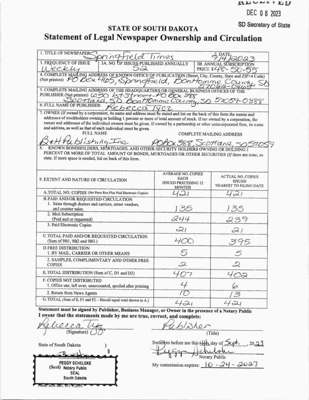 RECEIVED
DEC 08 2023
SD Secretary of State
STATE OF SOUTH DAKOTA
Statement of Legal Newspaper Ownership and Circulation
1. TITLE OF NEWSPAPER Springfield Times
2. DATE 9/4/2023
3. FREQUENCY OF ISSUE Weekly
3A. NO. OF ISSUES PUBLISHED ANNUALLY 52
3B. ANNUAL SUBSCRIPTION PRICE
4. COMPLETE MAILING ADDRESS OF KNOWN OFFICE OF PUBLICATION (Street, City, County, State and ZIP+4 Code) (Not printers) PO Box 465, Springfield, Bon Homme County, SD
5. COMPLETE MAILING ADDRESS OF THE HEADQUARTERS OR GENERAL BUSINESS OFFICES OF THE PUBLISHER (Not printers)
Scotland, SD Bon Homme County, SD 57059-0388
6. FULL NAME OF PUBLISHER: Rebecca Tycz
7. OWNER (If owned by a corporation, its name and address must be stated and also list on the back of this form the names and addresses of stockholders owning or holding 1 percent or more of total amount of stock. If not owned by a corporation, the names and addresses of the individual owners must be given. If owned by a partnership or other unincorporated firm, its name and address, as well as that of each individual must be given.
FULL NAME COMPLETE MAILING ADDRESS
B & H Publishing, Inc. PO Box 388 Scotland, SD 57059
8. KNOWN BONDHOLDERS, MORTGAGES, AND OTHER SECURITY HOLDERS OWNING OR HOLDING 1 PERCENT OR MORE OF TOTAL AMOUNT OF BONDS, MORTGAGES OR OTHER SECURITIES (If there are none, so state. If more space is needed, list on back of this form.
9. EXTENT AND NATURE OF CIRCULATION
AVERAGE NO. COPIES EACH ISSUES PRECEDING 12 MONTHS
ACTUAL NO. COPIES ISSUED NEAREST TO FILING DATE
A. TOTAL NO. COPIES (Net Press Run Plus Paid Electronic Copies) 421 421
B. PAID AND/OR REQUESTED CIRCULATION
1. Sales through dealers and carriers, street vendors, and counter sales. 135 135
2. Mail Subscription (Paid and/or requested) 244 239
3. Paid Electronic Copies 21 21
C. TOTAL PAID AND/OR REQUESTED CIRCULATION (Sum of 9B1, 9B2 and 9B3.) 400 395
D. FREE DISTRIBUTION
1. BY MAIL, CARRIER OR OTHER MEANS 5 5
2. SAMPLES, COMPLIMENTARY AND OTHER FREE COPIES 2 2
E. TOTAL DISTRIBUTION (Sum of C, D1 and D2) 407 402
F. COPIES NOT DISTRIBUTED
1. Office use, left over, unaccounted, spoiled after printing 4 6
2. Return from News Agents 10 13
G. TOTAL (Sum of E, F1 and F2 - Should equal total shown in A.) 421 421
Statement must be signed by Publisher, Business Manager, or Owner in the presence of a Notary Public
I swear that the statements made by me are true, correct, and complete:
Rebecca Tycz Publisher
(Signature) (Title)
State of South Dakota )
Sworn to before me this 4th day of Sept. 2023
Peggy Schelske
Notary Public
My commission expires: 10-24-2027
PEGGY SCHELSKE
(Seal) Notary Public
SEAL
South Dakota